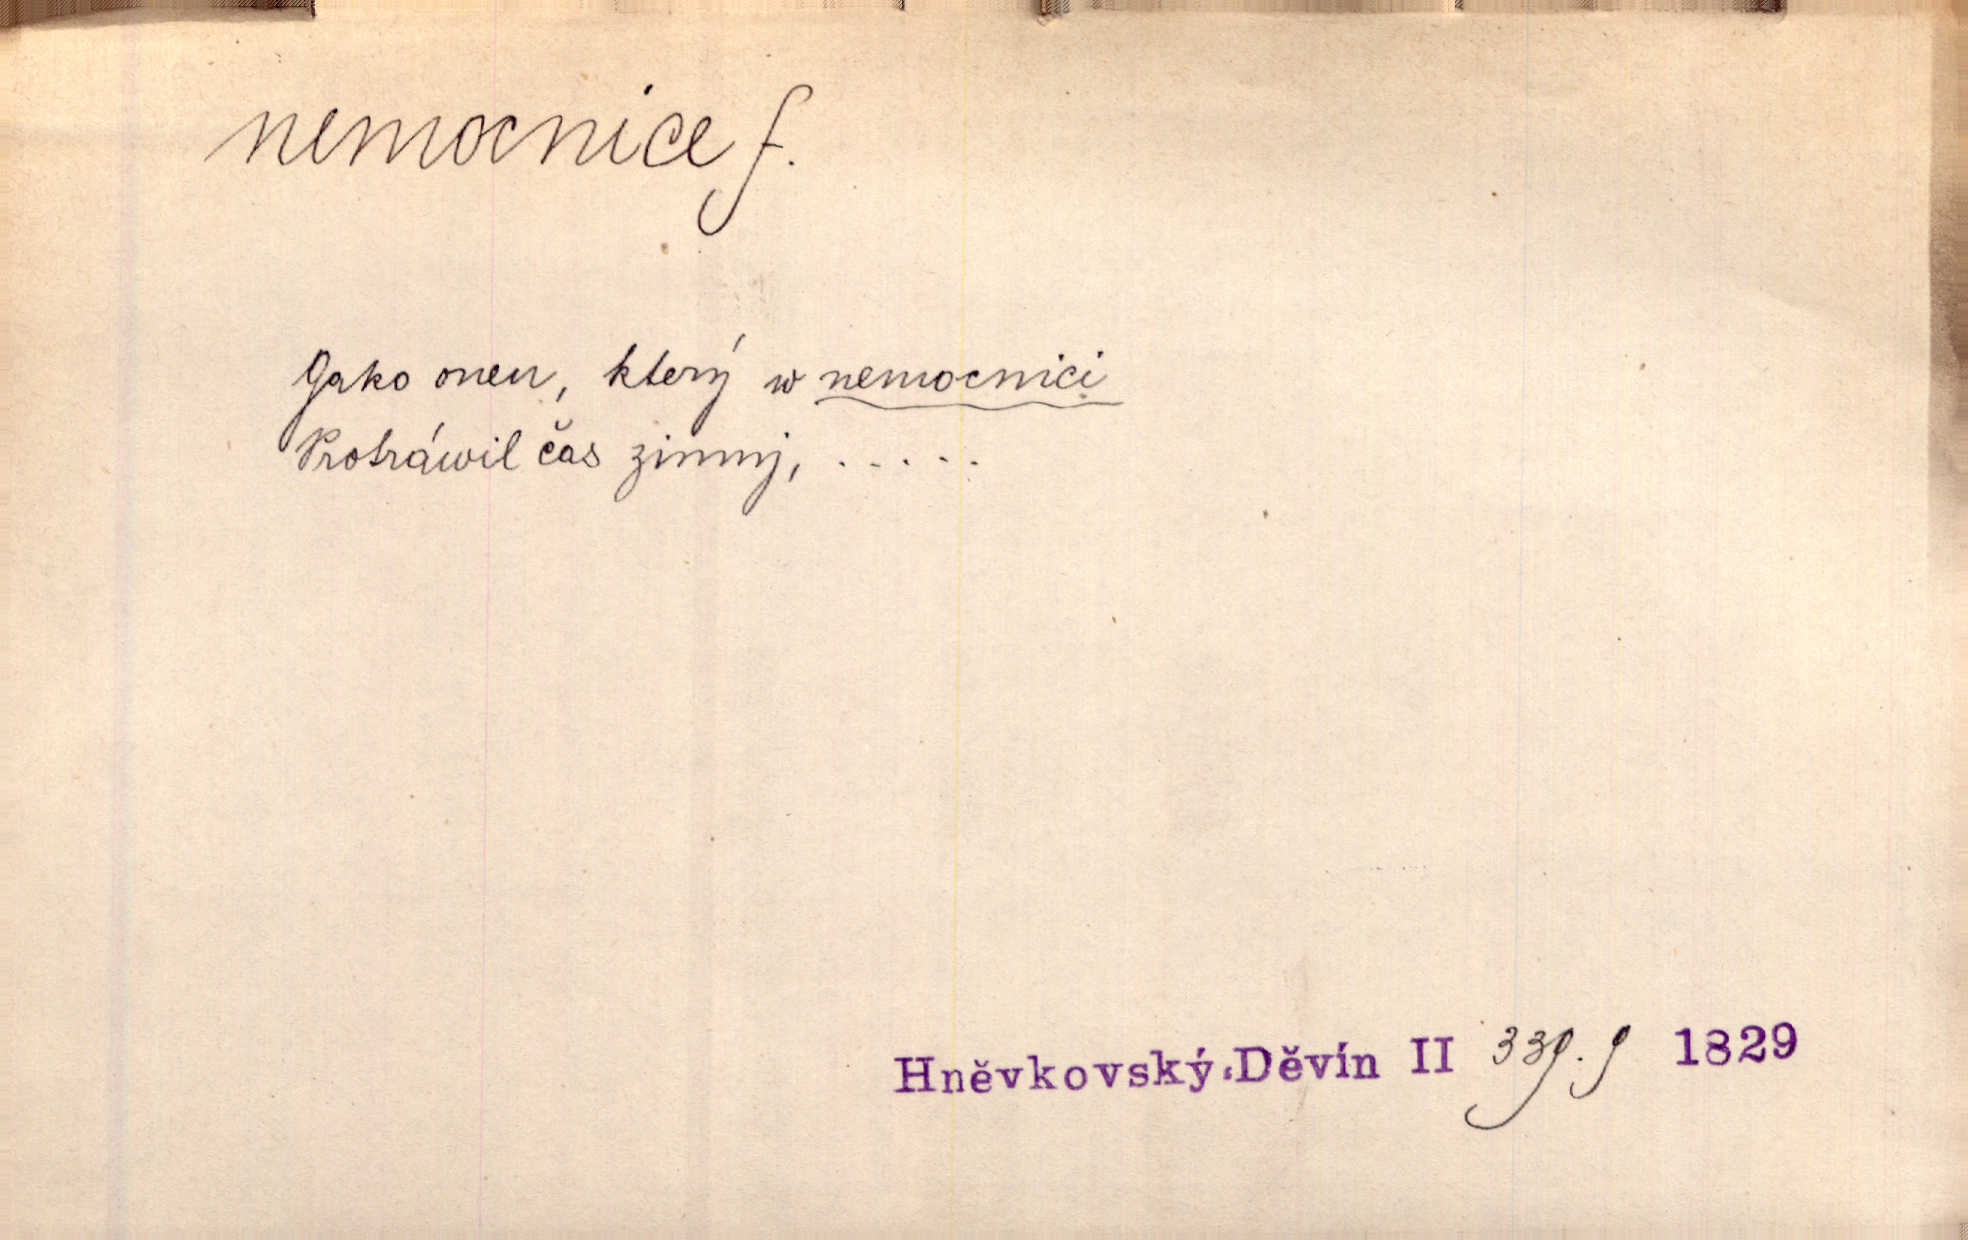 nemocnice f.
Gako onen, který w nemocnici
Protráwil čas zimnj, . . . . .
Hněvkovský. Děvín II 339. 9 1829